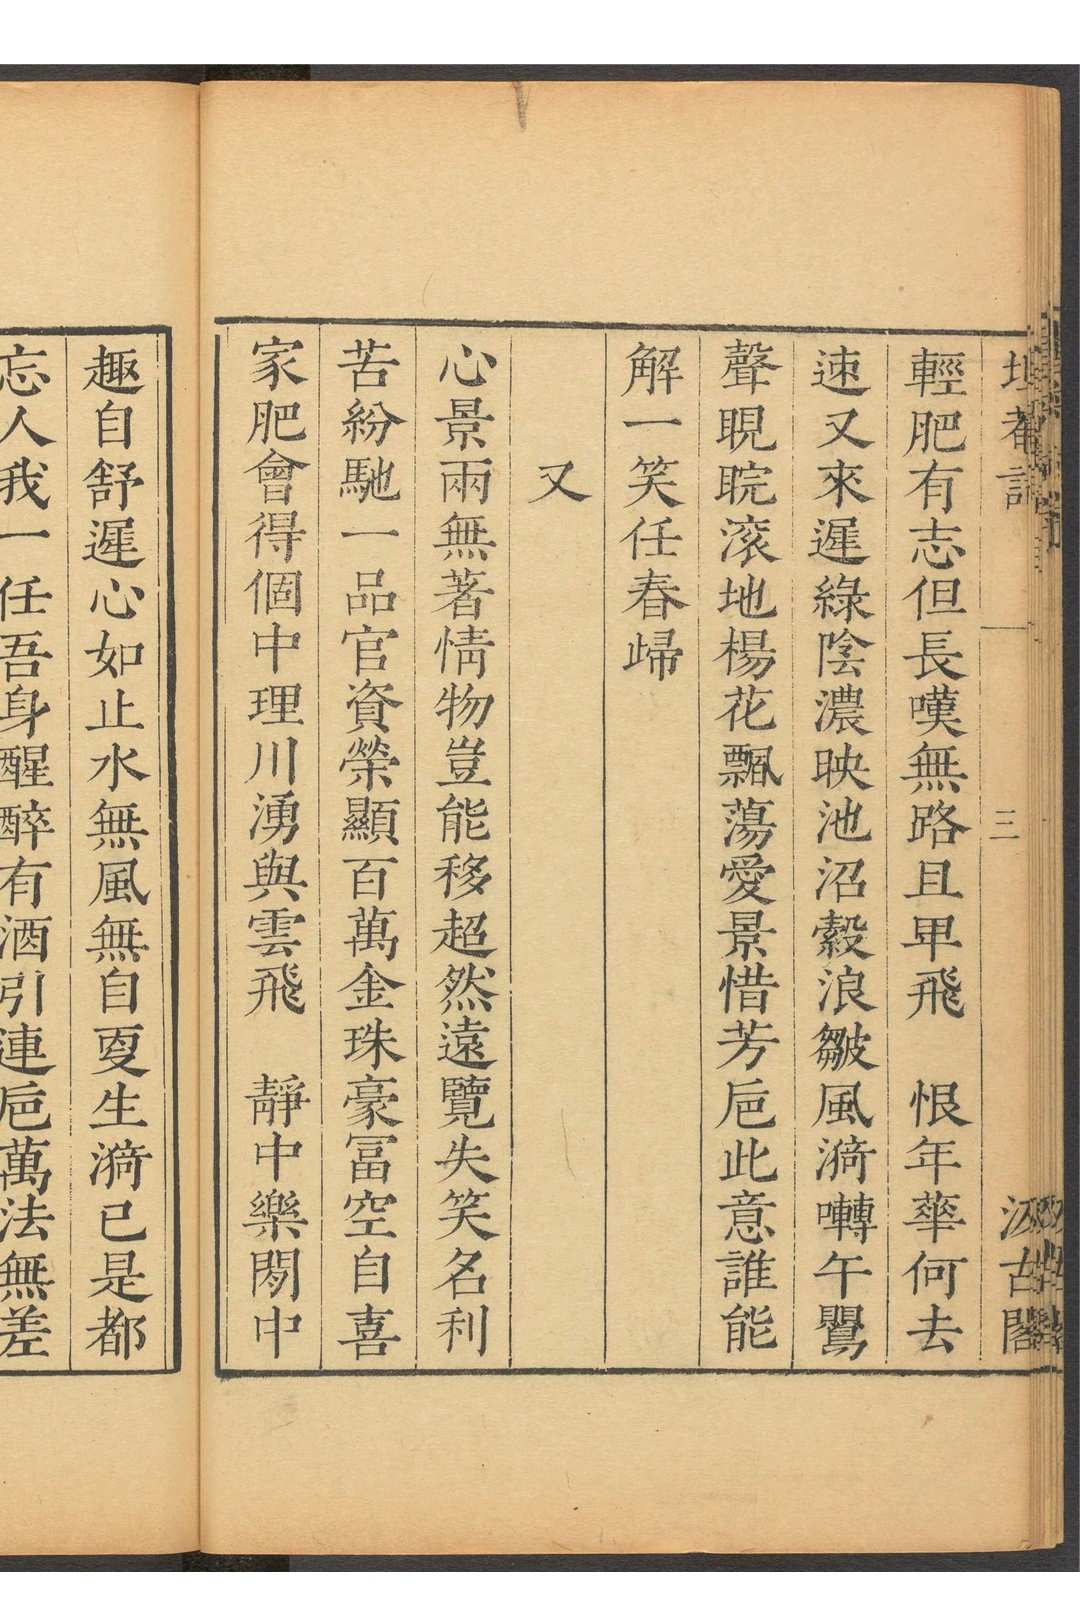 坦菴詞　三　汲古閣
輕肥有志但長嘆無路且卑飛　恨年華何去
速又來遲綠陰濃映池沼縠浪皺風漪囀午鸎
聲睍睆滚地楊花飄蕩愛景惜芳巵此意誰能
解一笑任春歸
又
心景兩無著情物豈能移超然遠覽失笑名利
苦紛馳一品官資榮顯百萬金珠豪冨空自喜
家肥會得個中理川湧與雲飛　靜中樂閒中
趣自舒遲心如止水無風無自更生漪已是都
忘人我一任吾身醒醉有酒引連巵萬法無差